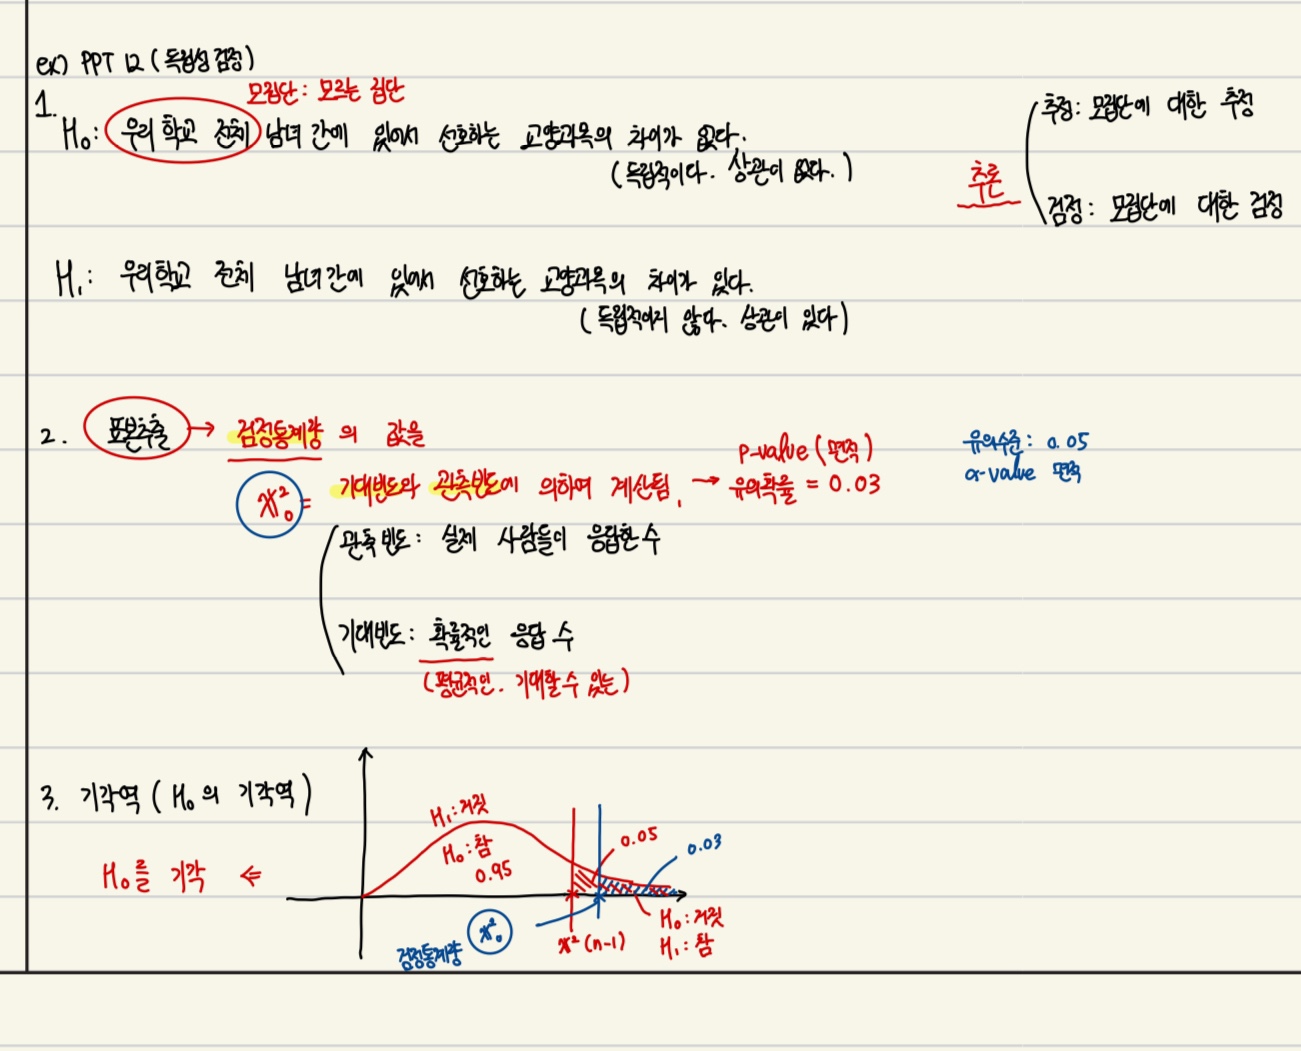 ex) PPT 12 (독립성 검정)
모집단: 모르는 집단
1.
H₀: 우리 학교 전체 남녀 간에 있어서 선호하는 교양과목의 차이가 없다.
(독립적이다. 상관이 없다.)
추론
추정: 모집단에 대한 추정
검정: 모집단에 대한 검정
H₁: 우리학교 전체 남녀간에 있어서 선호하는 교양과목의 차이가 있다.
(독립적이지 않다. 상관이 있다)
2. 표본추출 → 검정통계량의 값을
χ²₀ = 기대빈도와 관측빈도에 의하여 계산됨. → 유의확률 = 0.03
P-value (면적)
유의수준: 0.05
α-value 면적
관측빈도: 실제 사람들이 응답한 수
기대빈도: 확률적인 응답 수
(평균적인. 기대할 수 있는)
3. 기각역 (H₀의 기각역)
H₀를 기각 ⇐
H₁: 거짓
H₀: 참
0.95
0.05
0.03
H₀: 거짓
H₁: 참
χ² (n-1)
χ²₀
검정통계량